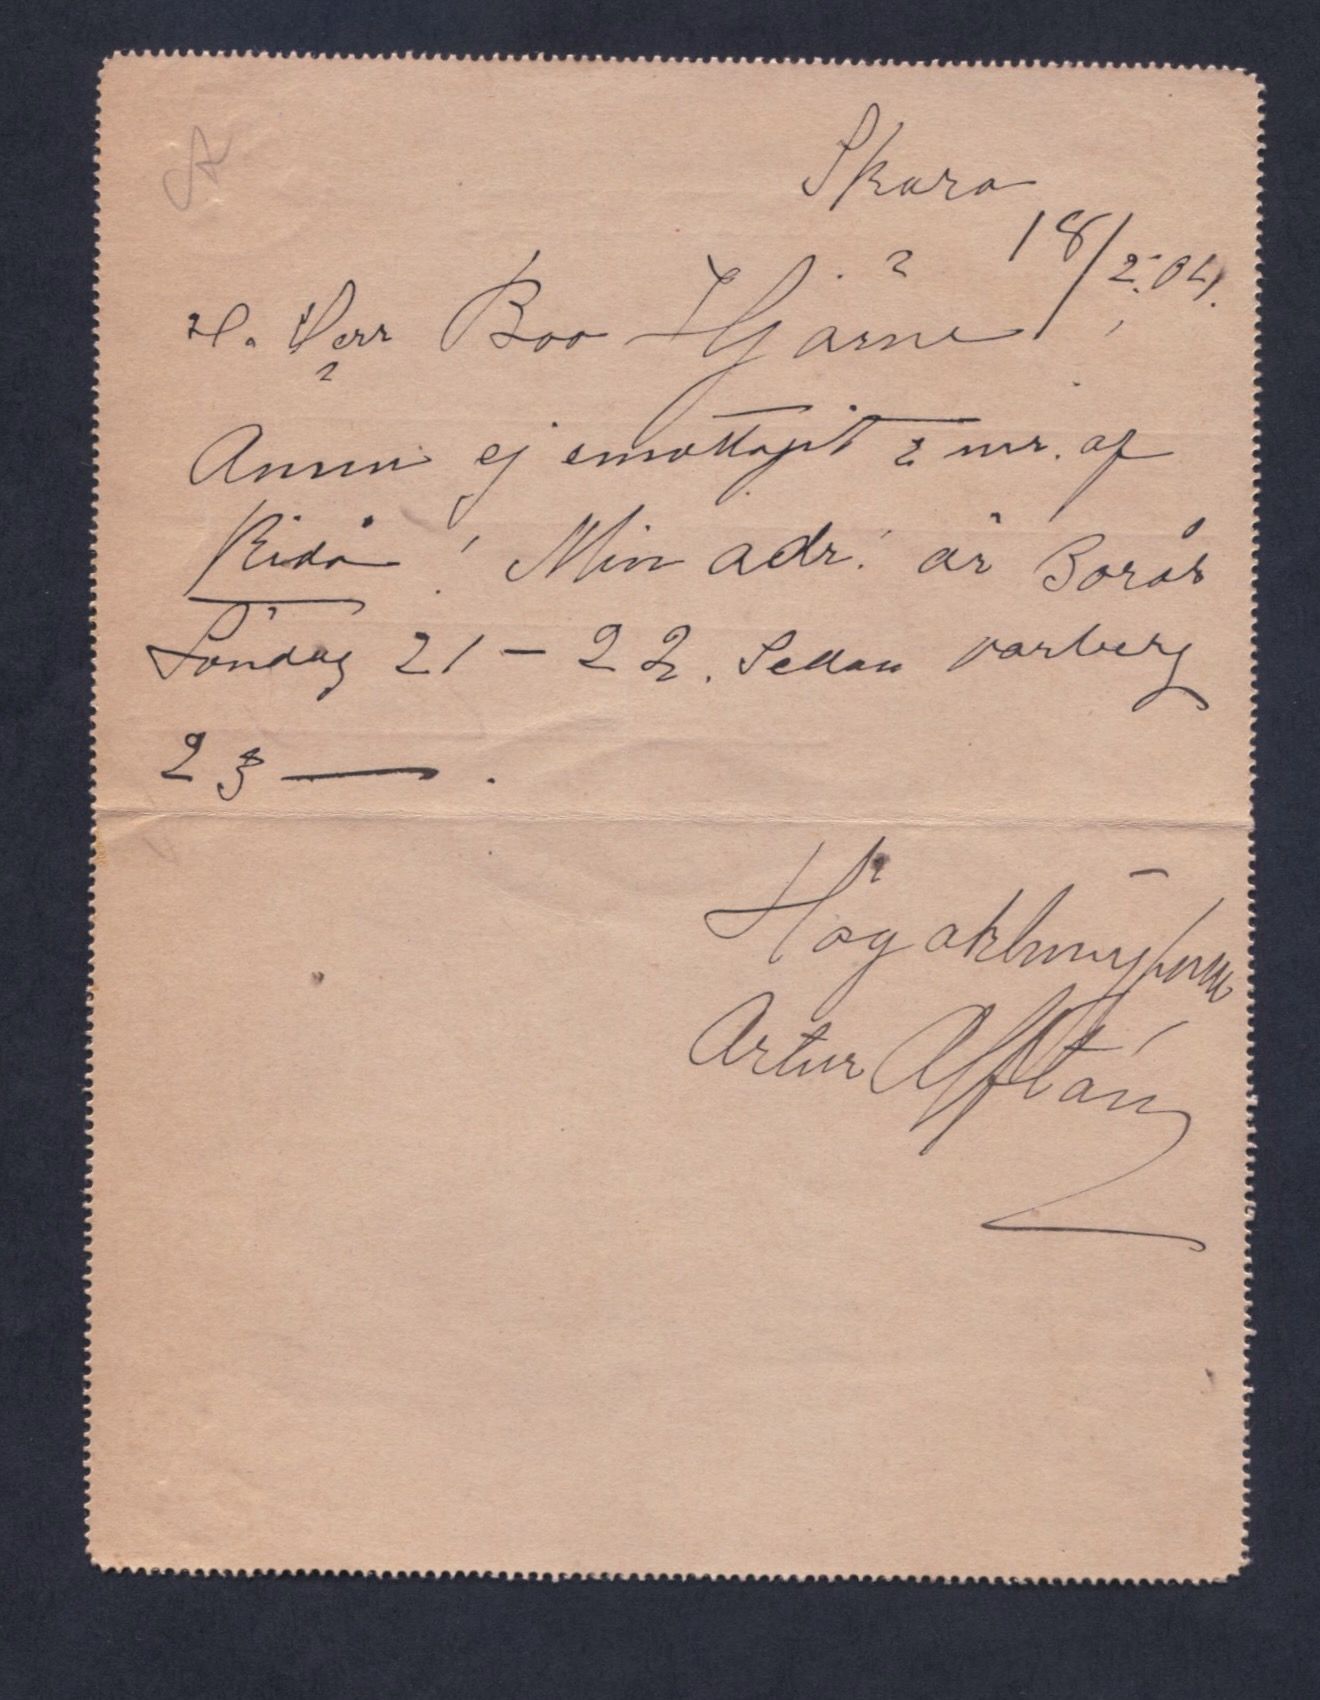 Skara
18/2.04.
H. Herr Boo Hjärne!
Ännu ej emottagit 2 nr. af
Ridå! Min adr. är Borås
Söndag 21 - 22. Sedan Varberg
23 —.
Högaktningsful
Artur